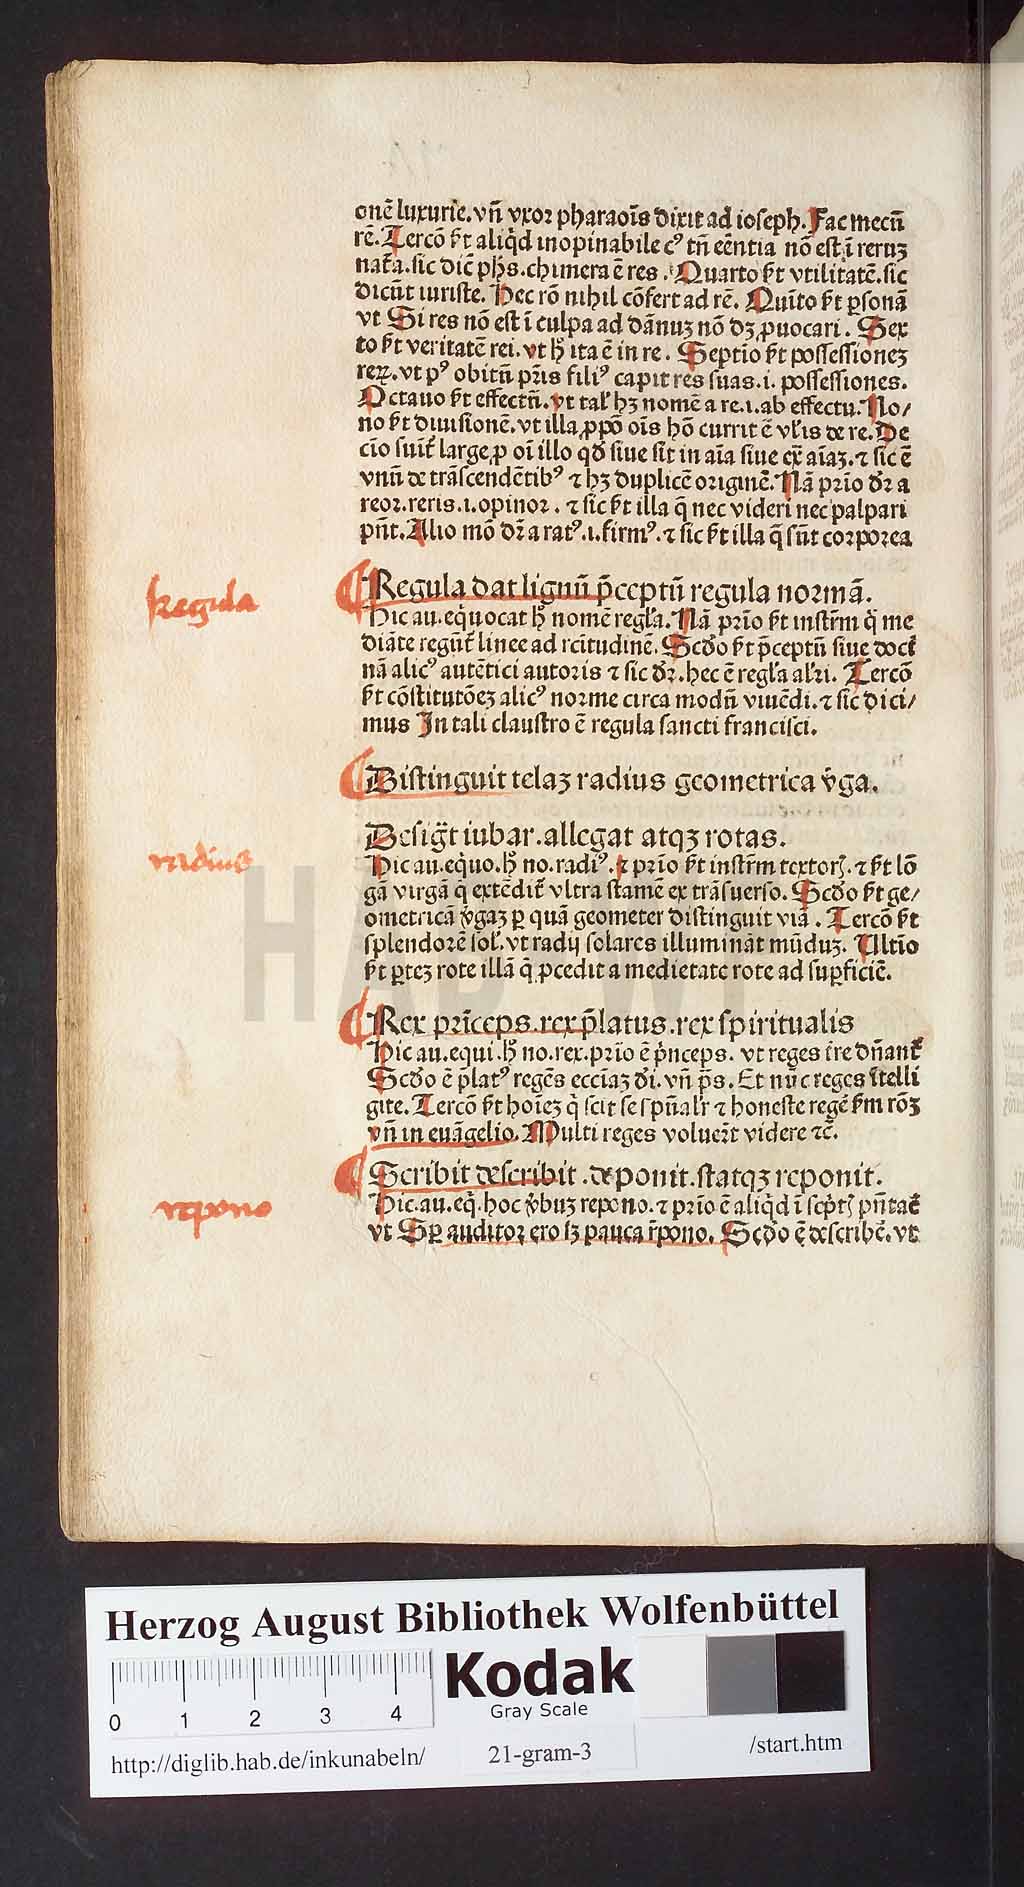 onē luxurie. vñ vxor pharaoīs dixit ad ioseph. Fac mecū
rē. Tercō s̄t aliq̇d inopinabile cꝰ tñ eēntia nō est ī reruꝫ
nať̄a. sic dic̄ ph̄s. chimera ē res. Quarto s̄t vtilitatē. sic
dicūt iuriste. Hec rō nihil cōfert ad rē. Quīto s̄t ꝑsonā
vt Si res nō est ī culpa ad dānuꝫ nō dꝫ ꝓuocari. Sex
to s̄t veritatē rei. vt ɧ̄ ita ē in re. Septīo s̄t possessioneꝫ
reꝝ. vt pꝰ obitū pr̄is filiꝰ capit res suas .i. possessiones.
Octauo s̄t effectū. vt taľ hꝫ nomē a re .i. ab effectu. No/
no s̄t diuisionē. vt illa ꝓpō oīs hō currit ē vľis de re. De
cīo suiť large ꝓ oī illo qđ siue sit in aīa siue ex̄ aīaꝫ. ⁊ sic ē
vnū de trāscendētibꝰ ⁊ hꝫ duplicē originē. Nā prīo dr̄ a
reor. reris .i. opinor. ⁊ sic s̄t illa q̄ nec videri nec palpari
pn̄t. Alio mō dr̄ a ratꝰ .i. firmꝰ. ⁊ sic s̄t illa q̄ sūt corporea
Regula
Regula dat lignū p̄ceptū regula normā.
Hic au. eq̇uocat ɧ̄ nomē regľa. Nā prīo s̄t instr̄m q̇ me
diāte regūť linee ad rcītudinē. Scđo s̄t p̄ceptū siue docť
nā alicꝰ autētici autoris ⁊ sic dr̄. hec ē regľa aľxi. Tercō
s̄t cōstitutōeꝫ alicꝰ norme circa modū viuēdi. ⁊ sic dici/
mus In tali claustro ē regula sancti francisci.
Distinguit telaꝫ radius geometrica v̇ga.
Desiġt iubar. allegat atqꝫ rotas.
radius
Hic au. eq̇uo. ɧ̄ no. radiꝰ. ⁊ prīo s̄t instr̄m textorꝭ. ⁊ s̄t lō
gā virgā q̄ extēdiť vltra stamē ex trāsuerso. Scđo s̄t ge/
ometricā v̇gaꝫ ꝑ quā geometer distinguit viā. Tercō s̄t
splendorē soľ. vt radij solares illumināt mūduꝫ. Vltīo
s̄t ꝑteꝫ rote illā q̄ ꝓcedit a medietate rote ad suꝑficiē.
Rex prīceps. rex p̄latus. rex spiritualis
Hic au. equi. ɧ̄ no. rex. prīo ē ṗnceps. vt reges tr̄e dn̄anť
Scđo ē p̄latꝰ regēs eccīaꝫ đi. vñ ps̄. Et nūc reges ītelli
gite. Tercō s̄t hoīeꝫ q̇ scit se spn̄aľr ⁊ honeste regē s̄m rōꝫ
vñ in euāgelio. Multi reges voluer̄t videre ⁊c̄.
Scribit describit. deponit. statqꝫ reponit.
repono
Hic. au. eq̇. hoc v̇buꝫ repono. ⁊ prīo ē aliq̇d ī scp̄tꝭ pn̄taē
vt Sꝑ auditor ero sꝫ pauca r̄pono. Scđo ē describē. vt
HAB WF
Herzog August Bibliothek Wolfenbüttel
Kodak
Gray Scale
0 1 2 3 4
http://diglib.hab.de/inkunabeln/ 21-gram-3 /start.htm